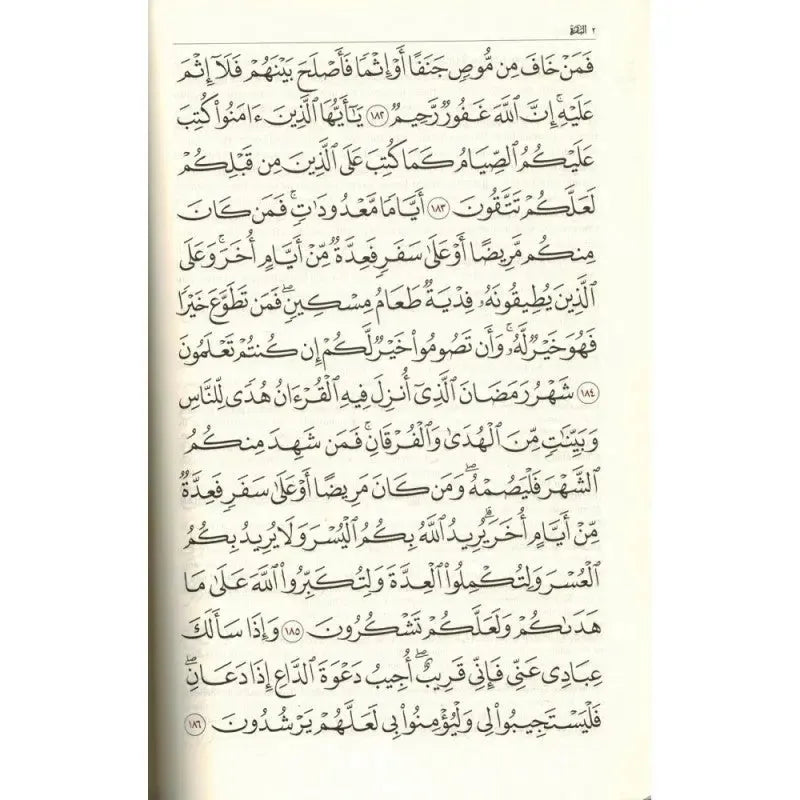 ٢ البقرة
فَمَنْ خَافَ مِن مُّوصٍ جَنَفًا أَوْ إِثْمًا فَأَصْلَحَ بَيْنَهُمْ فَلَآ إِثْمَ
عَلَيْهِ ۚ إِنَّ ٱللَّهَ غَفُورٌ رَّحِيمٌ ١٨٢ يَـٰٓأَيُّهَا ٱلَّذِينَ ءَامَنُوا۟ كُتِبَ
عَلَيْكُمُ ٱلصِّيَامُ كَمَا كُتِبَ عَلَى ٱلَّذِينَ مِن قَبْلِكُمْ
لَعَلَّكُمْ تَتَّقُونَ ١٨٣ أَيَّامًا مَّعْدُودَٰتٍ ۚ فَمَن كَانَ
مِنكُم مَّرِيضًا أَوْ عَلَىٰ سَفَرٍ فَعِدَّةٌ مِّنْ أَيَّامٍ أُخَرَ ۚ وَعَلَى
ٱلَّذِينَ يُطِيقُونَهُۥ فِدْيَةٌ طَعَامُ مِسْكِينٍ ۖ فَمَن تَطَوَّعَ خَيْرًا
فَهُوَ خَيْرٌ لَّهُۥ ۚ وَأَن تَصُومُوا۟ خَيْرٌ لَّكُمْ ۖ إِن كُنتُمْ تَعْلَمُونَ
١٨٤ شَهْرُ رَمَضَانَ ٱلَّذِىٓ أُنزِلَ فِيهِ ٱلْقُرْءَانُ هُدًى لِّلنَّاسِ
وَبَيِّنَـٰتٍ مِّنَ ٱلْهُدَىٰ وَٱلْفُرْقَانِ ۚ فَمَن شَهِدَ مِنكُمُ
ٱلشَّهْرَ فَلْيَصُمْهُ ۖ وَمَن كَانَ مَرِيضًا أَوْ عَلَىٰ سَفَرٍ فَعِدَّةٌ
مِّنْ أَيَّامٍ أُخَرَ ۗ يُرِيدُ ٱللَّهُ بِكُمُ ٱلْيُسْرَ وَلَا يُرِيدُ بِكُمُ
ٱلْعُسْرَ وَلِتُكْمِلُوا۟ ٱلْعِدَّةَ وَلِتُكَبِّرُوا۟ ٱللَّهَ عَلَىٰ مَا
هَدَىٰكُمْ وَلَعَلَّكُمْ تَشْكُرُونَ ١٨٥ وَإِذَا سَأَلَكَ
عِبَادِى عَنِّى فَإِنِّى قَرِيبٌ ۖ أُجِيبُ دَعْوَةَ ٱلدَّاعِ إِذَا دَعَانِ ۖ
فَلْيَسْتَجِيبُوا۟ لِى وَلْيُؤْمِنُوا۟ بِى لَعَلَّهُمْ يَرْشُدُونَ ١٨٦